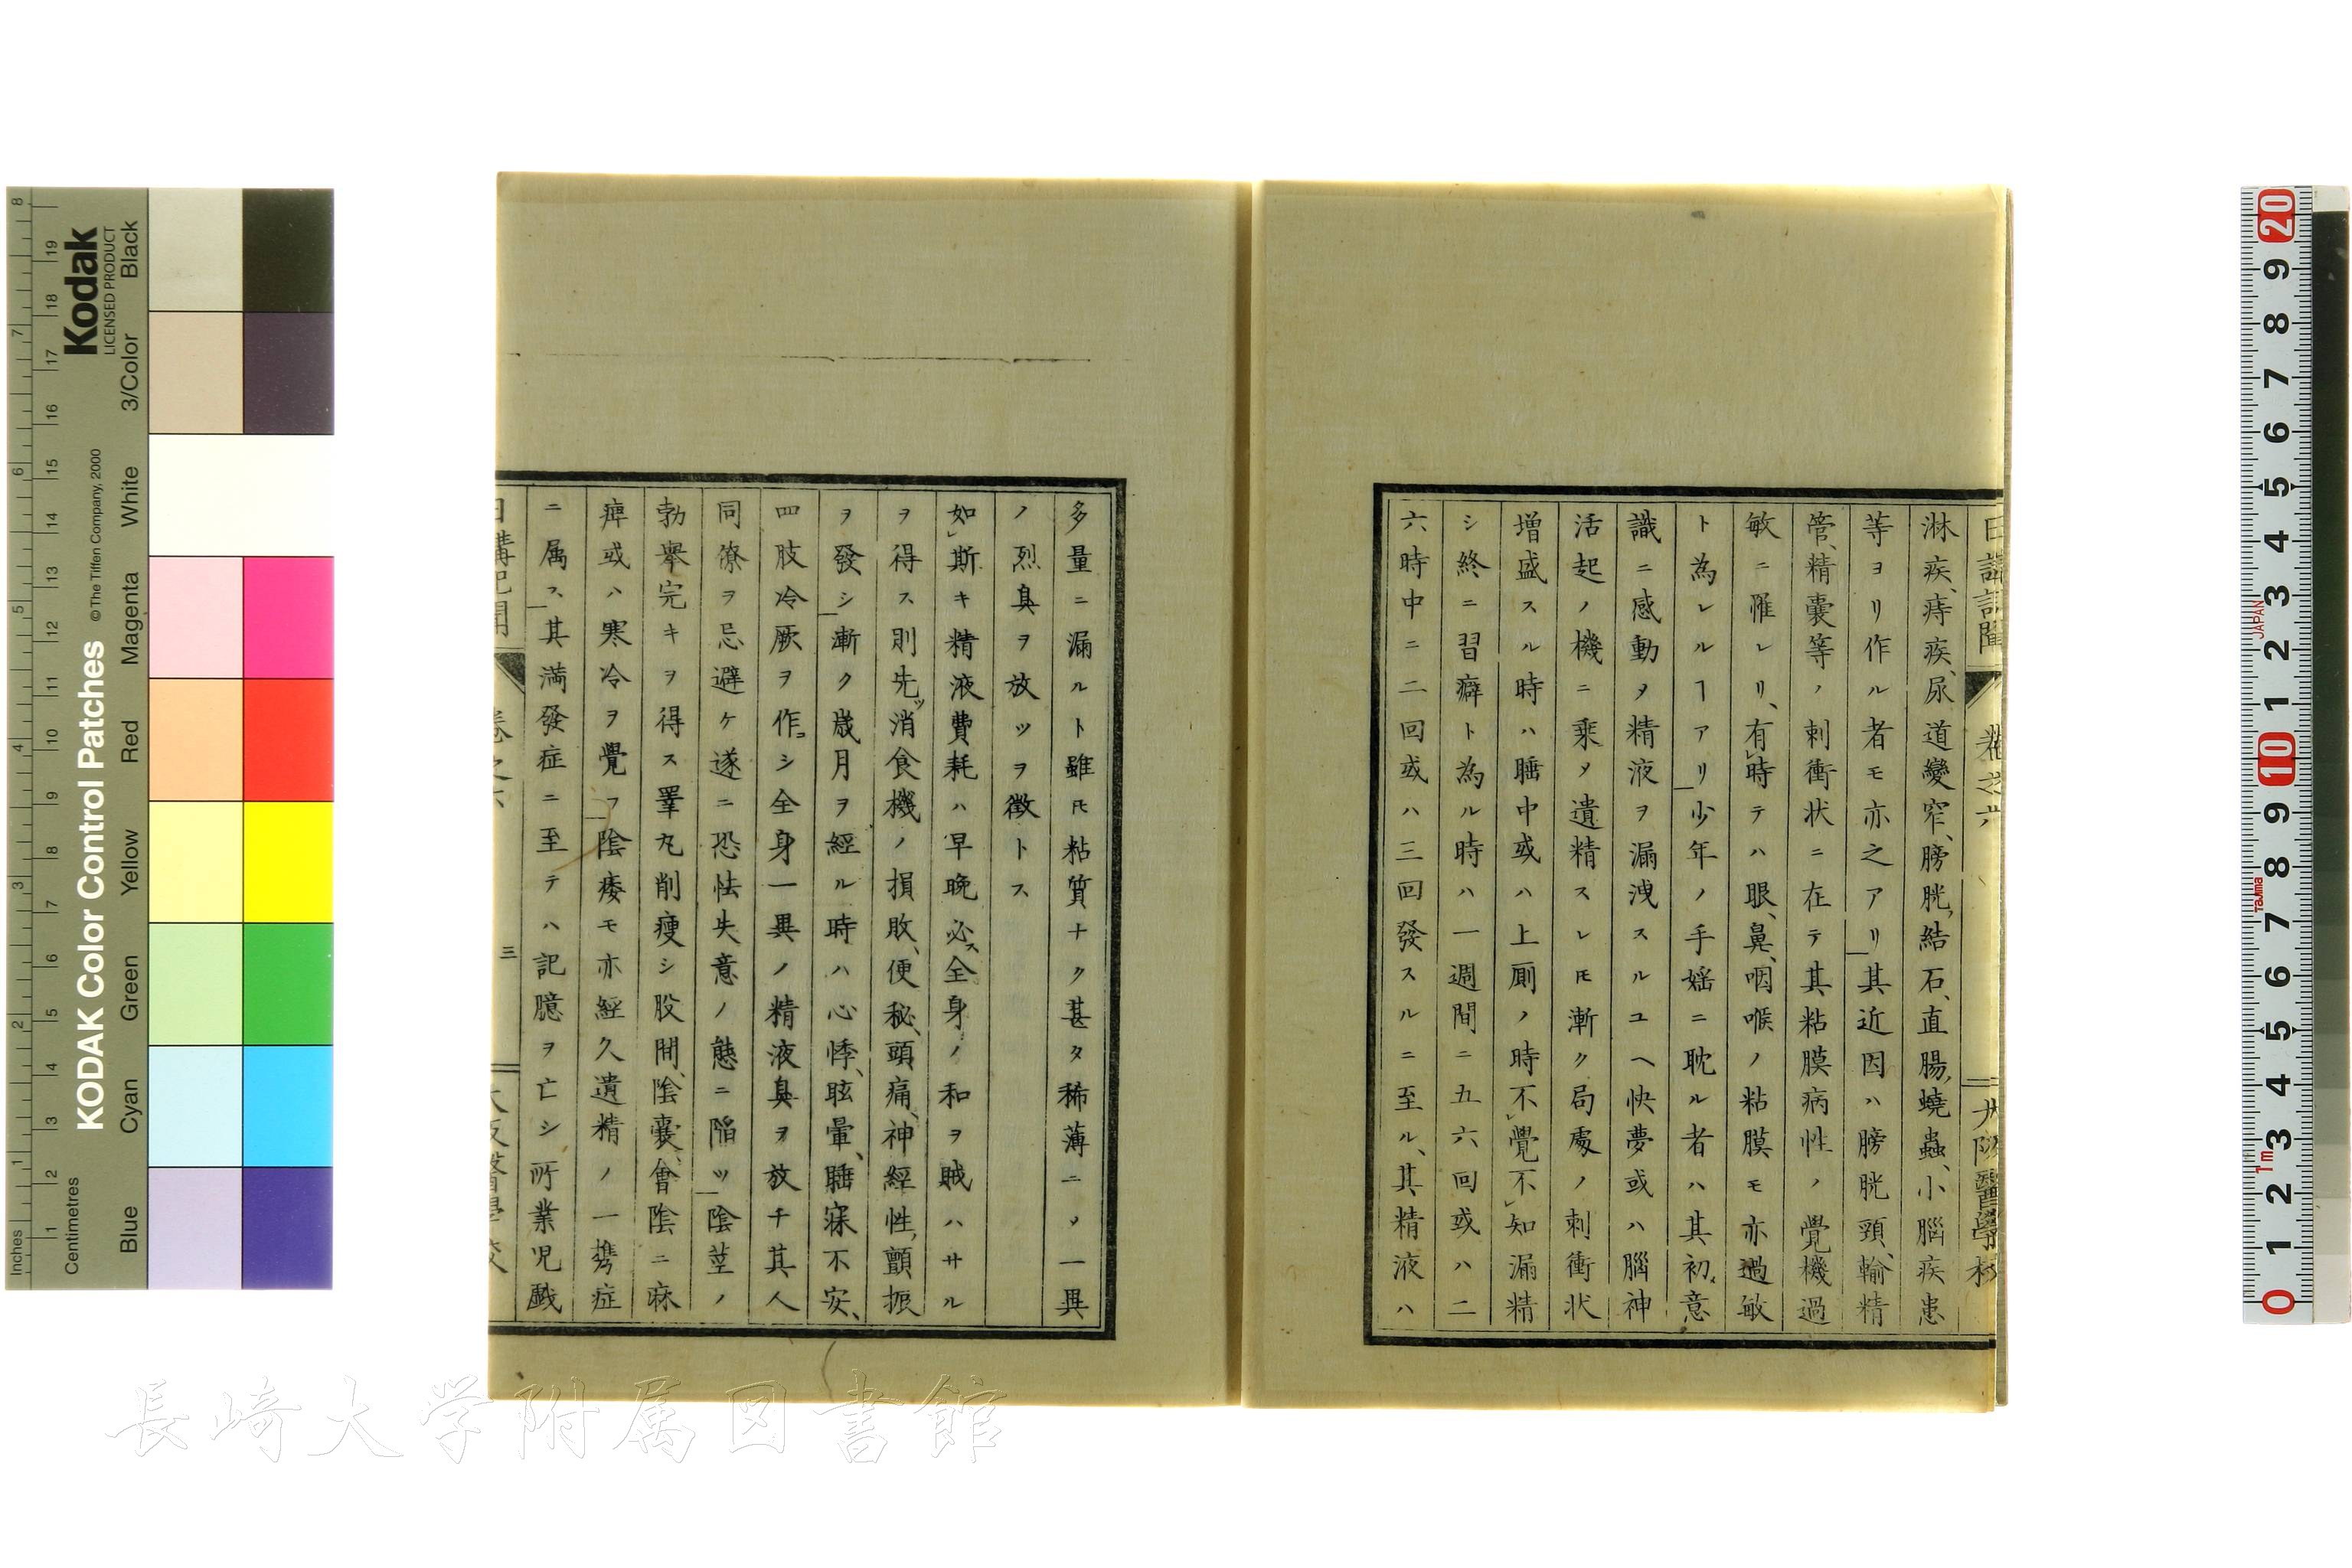 日講記聞 卷之六 大阪醫學校
淋疾、痔疾、尿道變窄、膀胱結石、直腸蟯蟲、小腦疾患
等ヨリ作ル者モ亦之アリ其近因ハ膀胱頸、輸精
管、精嚢等ノ刺衝状ニ在テ其粘膜病性ノ覺機過
敏ニ罹レリ、有時テハ眼、鼻、咽喉ノ粘膜モ亦過敏
ト為レルヿアリ少年ノ手婬ニ耽ル者ハ其初メ意
識ニ感動メ精液ヲ漏洩スルユヘ快夢或ハ腦神
活起ノ機ニ乘メ遺精スレ𪜈漸ク局處ノ刺衝状
増盛スル時ハ睡中或ハ上厠ノ時不覺不知漏精
シ終ニ習癖ト為ル時ハ一週間ニ五六回或ハ二
六時中ニ二回或ハ三回發スルニ至ル、其精液ハ
多量ニ漏ルト雖𪜈粘質ナク甚タ稀薄ニメ一異
ノ烈臭ヲ放ツヲ徴トス
如斯キ精液費耗ハ早晩必ス全身ノ和ヲ賊ハサル
ヲ得ス則先ツ消食機ノ損敗、便秘、頭痛、神經性顫振
ヲ發シ漸ク歳月ヲ經ル時ハ心悸、眩暈、睡寐不安、
四肢冷厥ヲ作シ全身一異ノ精液臭ヲ放チ其人
同僚ヲ忌避ケ遂ニ恐怯失意ノ態ニ陥ツ陰莖ノ
勃擧完キヲ得ス睪丸削痩シ股間、陰嚢、會陰ニ麻
痺或ハ寒冷ヲ覺フ陰痿モ亦經久遺精ノ一携症
ニ属ス、其満發症ニ至テハ記臆ヲ亡シ所業児戯
日講記聞 卷之六 三 大阪醫學校
Inches
Centimetres
KODAK Color Control Patches
© The Tiffen Company, 2000
Kodak
LICENSED PRODUCT
Blue Cyan Green Yellow Red Magenta White 3/Color Black
1 2 3 4 5 6 7 8
1 2 3 4 5 6 7 8 9 10 11 12 13 14 15 16 17 18 19
20 9 8 7 6 5 4 3 2 1 10 9 8 7 6 5 4 3 2 1 0
JAPAN
Tajima
1m
長崎大学附属図書館